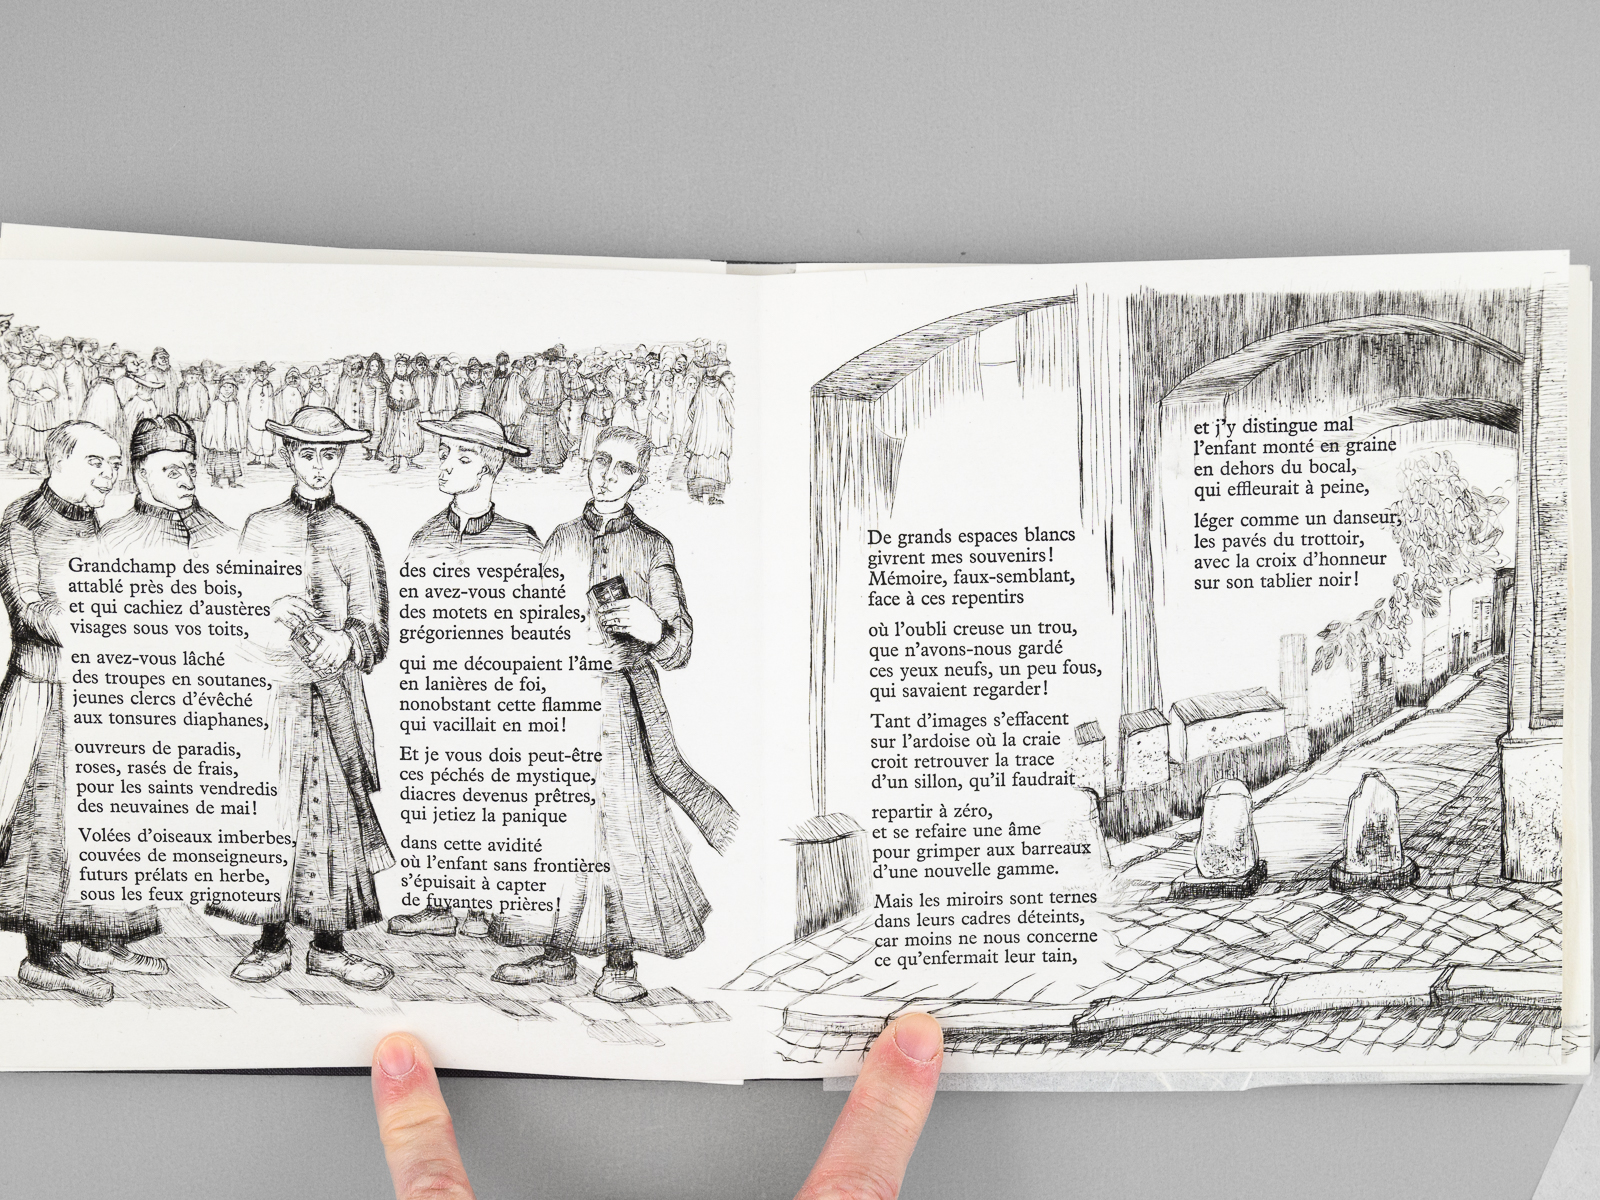 Grandchamp des séminaires
attablé près des bois,
et qui cachiez d'austères
visages sous vos toits,
en avez-vous lâché
des troupes en soutanes,
jeunes clercs d'évêché
aux tonsures diaphanes,
ouvreurs de paradis,
roses, rasés de frais,
pour les saints vendredis
des neuvaines de mai!
Volées d'oiseaux imberbes,
couvées de monseigneurs,
futurs prélats en herbe,
sous les feux grignoteurs
des cires vespérales,
en avez-vous chanté
des motets en spirales,
grégoriennes beautés
qui me découpaient l'âme
en lanières de foi,
nonobstant cette flamme
qui vacillait en moi!
Et je vous dois peut-être
ces péchés de mystique,
diacres devenus prêtres,
qui jetiez la panique
dans cette avidité
où l'enfant sans frontières
s'épuisait à capter
de fuyantes prières!
De grands espaces blancs
givrent mes souvenirs!
Mémoire, faux-semblant,
face à ces repentirs
où l'oubli creuse un trou,
que n'avons-nous gardé
ces yeux neufs, un peu fous,
qui savaient regarder!
Tant d'images s'effacent
sur l'ardoise où la craie
croit retrouver la trace
d'un sillon, qu'il faudrait
repartir à zéro,
et se refaire une âme
pour grimper aux barreaux
d'une nouvelle gamme.
Mais les miroirs sont ternes
dans leurs cadres déteints,
car moins ne nous concerne
ce qu'enfermait leur tain,
et j'y distingue mal
l'enfant monté en graine
en dehors du bocal,
qui effleurait à peine,
léger comme un danseur,
les pavés du trottoir,
avec la croix d'honneur
sur son tablier noir!